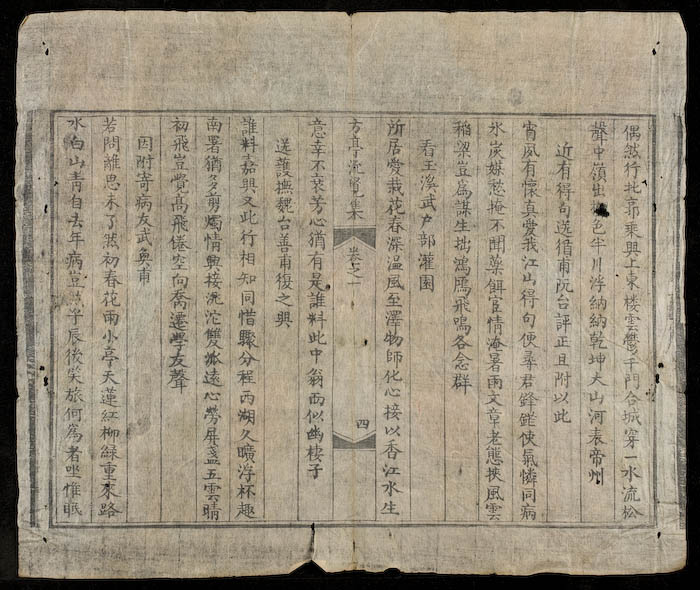 偶然行北郭乘興上東樓雲鬱千門合城穿一水流松
聲中嶺出 色半川浮納納乾坤大山河表帝州
近有得句送循甫阮台評正且附以此
宵夙有懷真愛我江山得句便尋君鋒鋩使氣憐同病
氷炭媒愁掩不聞藥餌宦情淹暑雨文章老態挾風雲
稻粱豈為謀生拙鴻鴈飛鳴各念群
看玉溪武户部灌園
所居愛栽花春深温風至澤物師化心接以香江水生
方亭流覽集 卷之一 四
意幸不衰芳心猶有是誰料此中翁而似幽棲子
送護撫魏台善甫復之興
誰料嘉興又此行相知同惜驟分程西湖久曠浮杯趣
南署猶多剪燭情興接滂沱雙 遠心勞屏盞五雲晴
初飛豈覺高飛倦空向喬遷學友聲
因附寄病友武奐甫
若問離思未了然初春花雨小亭天蓮紅柳綠重來路
水白山青自去年病豈 子辰後笑旅何為者坐惟眠